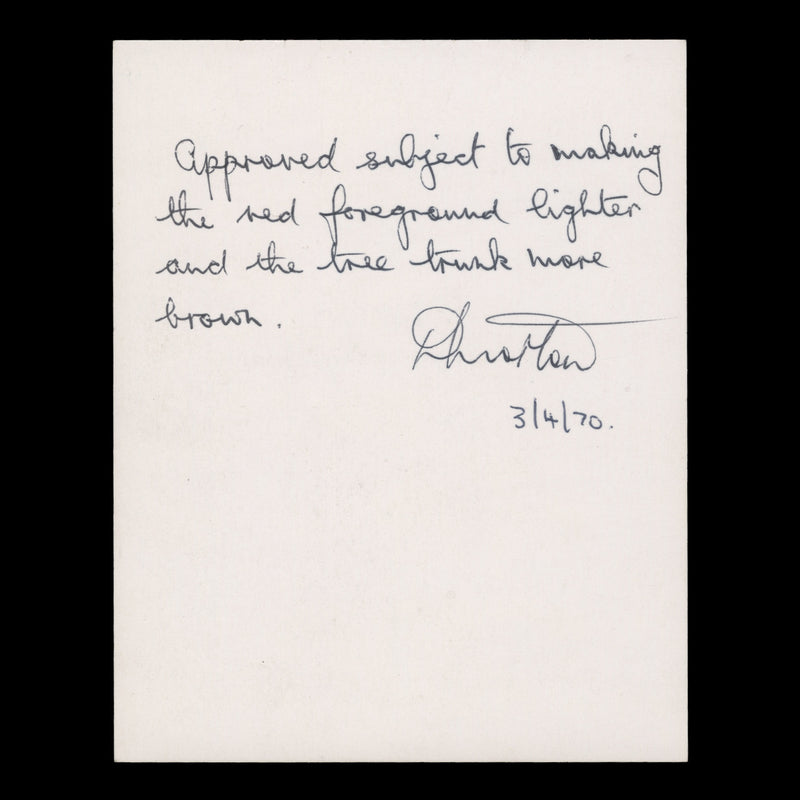 Approved subject to making
the red foreground lighter
and the tree trunk more
brown.
3/4/70.